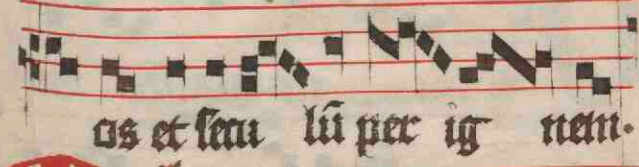 os et secu lū per ig nem.